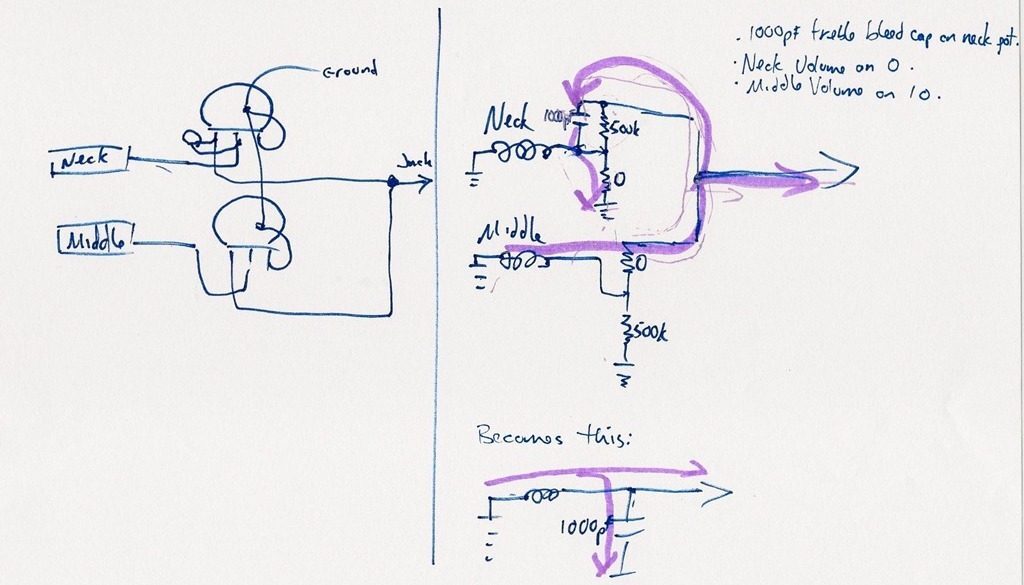 Ground
Neck
Jack
Middle
. 1000pF treble bleed cap on neck pot.
· Neck Volume on 0.
· Middle Volume on 10.
Neck
1000pF
500k
0
Middle
0
500k
Becomes this:
1000pF